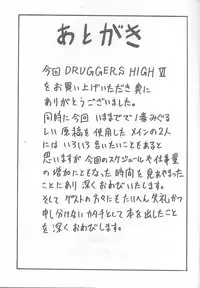 あとがき
今回 DRUGGERS HIGH Ⅵ
をお買い上げいただき 真に
ありがとうございました。
同時に今回 いままでで1番みぐる
しい原稿を使用した メインの2人
にはいろいろ言いたいこともあると
思いますが 今回のスケジュールや仕事量
の増加にともなった時間を見あやまった
ことにより深くおわびいたします。
そしてゲストの方にもたいへん失礼かつ
申し分けないカタチとして本を出したこと
を深くおわびします。